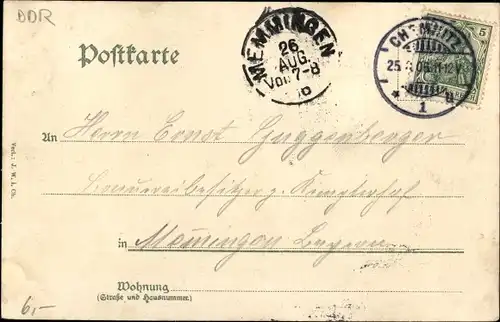 DDR
Postkarte
MEMMINGEN
26
AUG.
Vor. 7-8
CHEMNITZ
1
5
An Herrn Ernst Guggenberger
Brauereibesitzer z.
in Memmingen Bayern
Wohnung
(Straße und Hausnummer.)
6,-